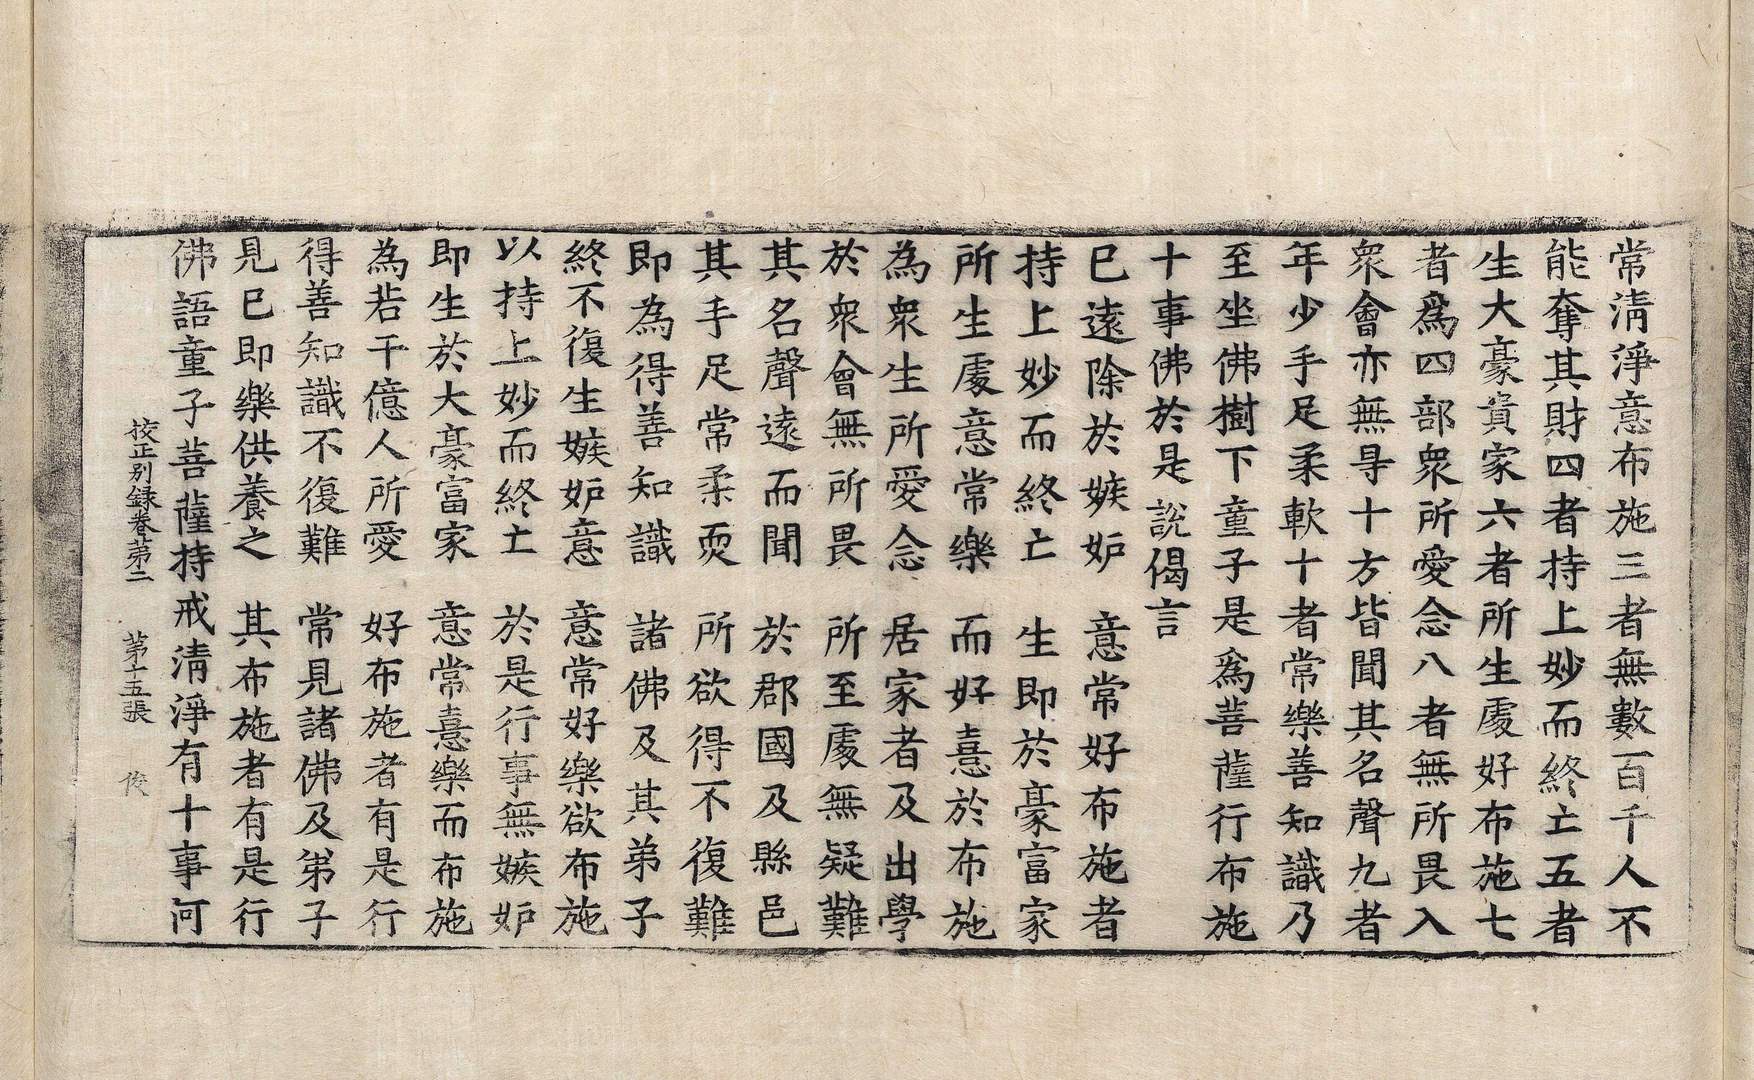 常清淨意布施三者無數百千人不
能奪其財四者持上妙而終亡五者
生大豪貴家六者所生處好布施七
者爲四部衆所愛念八者無所畏入
衆會亦無㝵十方皆聞其名聲九者
年少手足柔軟十者常樂善知識乃
至坐佛樹下童子是爲菩薩行布施
十事佛於是說偈言
已遠除於嫉妒　意常好布施者
持上妙而終亡　生即於豪富家
所生處意常樂　而好憙於布施
為衆生所愛念　居家者及出學
於衆會無所畏　所至處無疑難
其名聲遠而聞　於郡國及縣邑
其手足常柔耎　所欲得不復難
即為得善知識　諸佛及其弟子
終不復生嫉妒意　意常好樂欲布施
以持上妙而終亡　於是行事無嫉妒
即生於大豪富家　意常憙樂而布施
為若干億人所愛　好布施者有是行
得善知識不復難　常見諸佛及弟子
見已即樂供養之　其布施者有是行
佛語童子菩薩持戒清淨有十事何
校正別錄卷第二　第十五張　俊